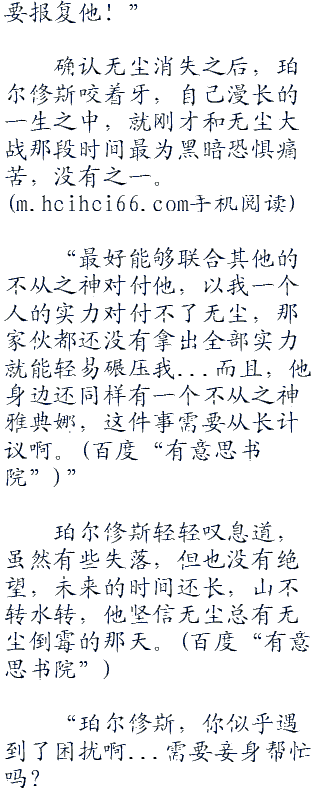 要报复他！”
确认无尘消失之后，珀
尔修斯咬着牙，自己漫长的
一生之中，就刚才和无尘大
战那段时间最为黑暗恐惧痛
苦，没有之一。
(m.hcihci66.com手机阅读)
“最好能够联合其他的
不从之神对付他，以我一个
人的实力对付不了无尘，那
家伙都还没有拿出全部实力
就能轻易碾压我...而且，他
身边还同样有一个不从之神
雅典娜，这件事需要从长计
议啊。(百度“有意思书
院”)”
珀尔修斯轻轻叹息道，
虽然有些失落，但也没有绝
望，未来的时间还长，山不
转水转，他坚信无尘总有无
尘倒霉的那天。(百度“有意
思书院”)
“珀尔修斯，你似乎遇
到了困扰啊...需要妾身帮忙
吗？